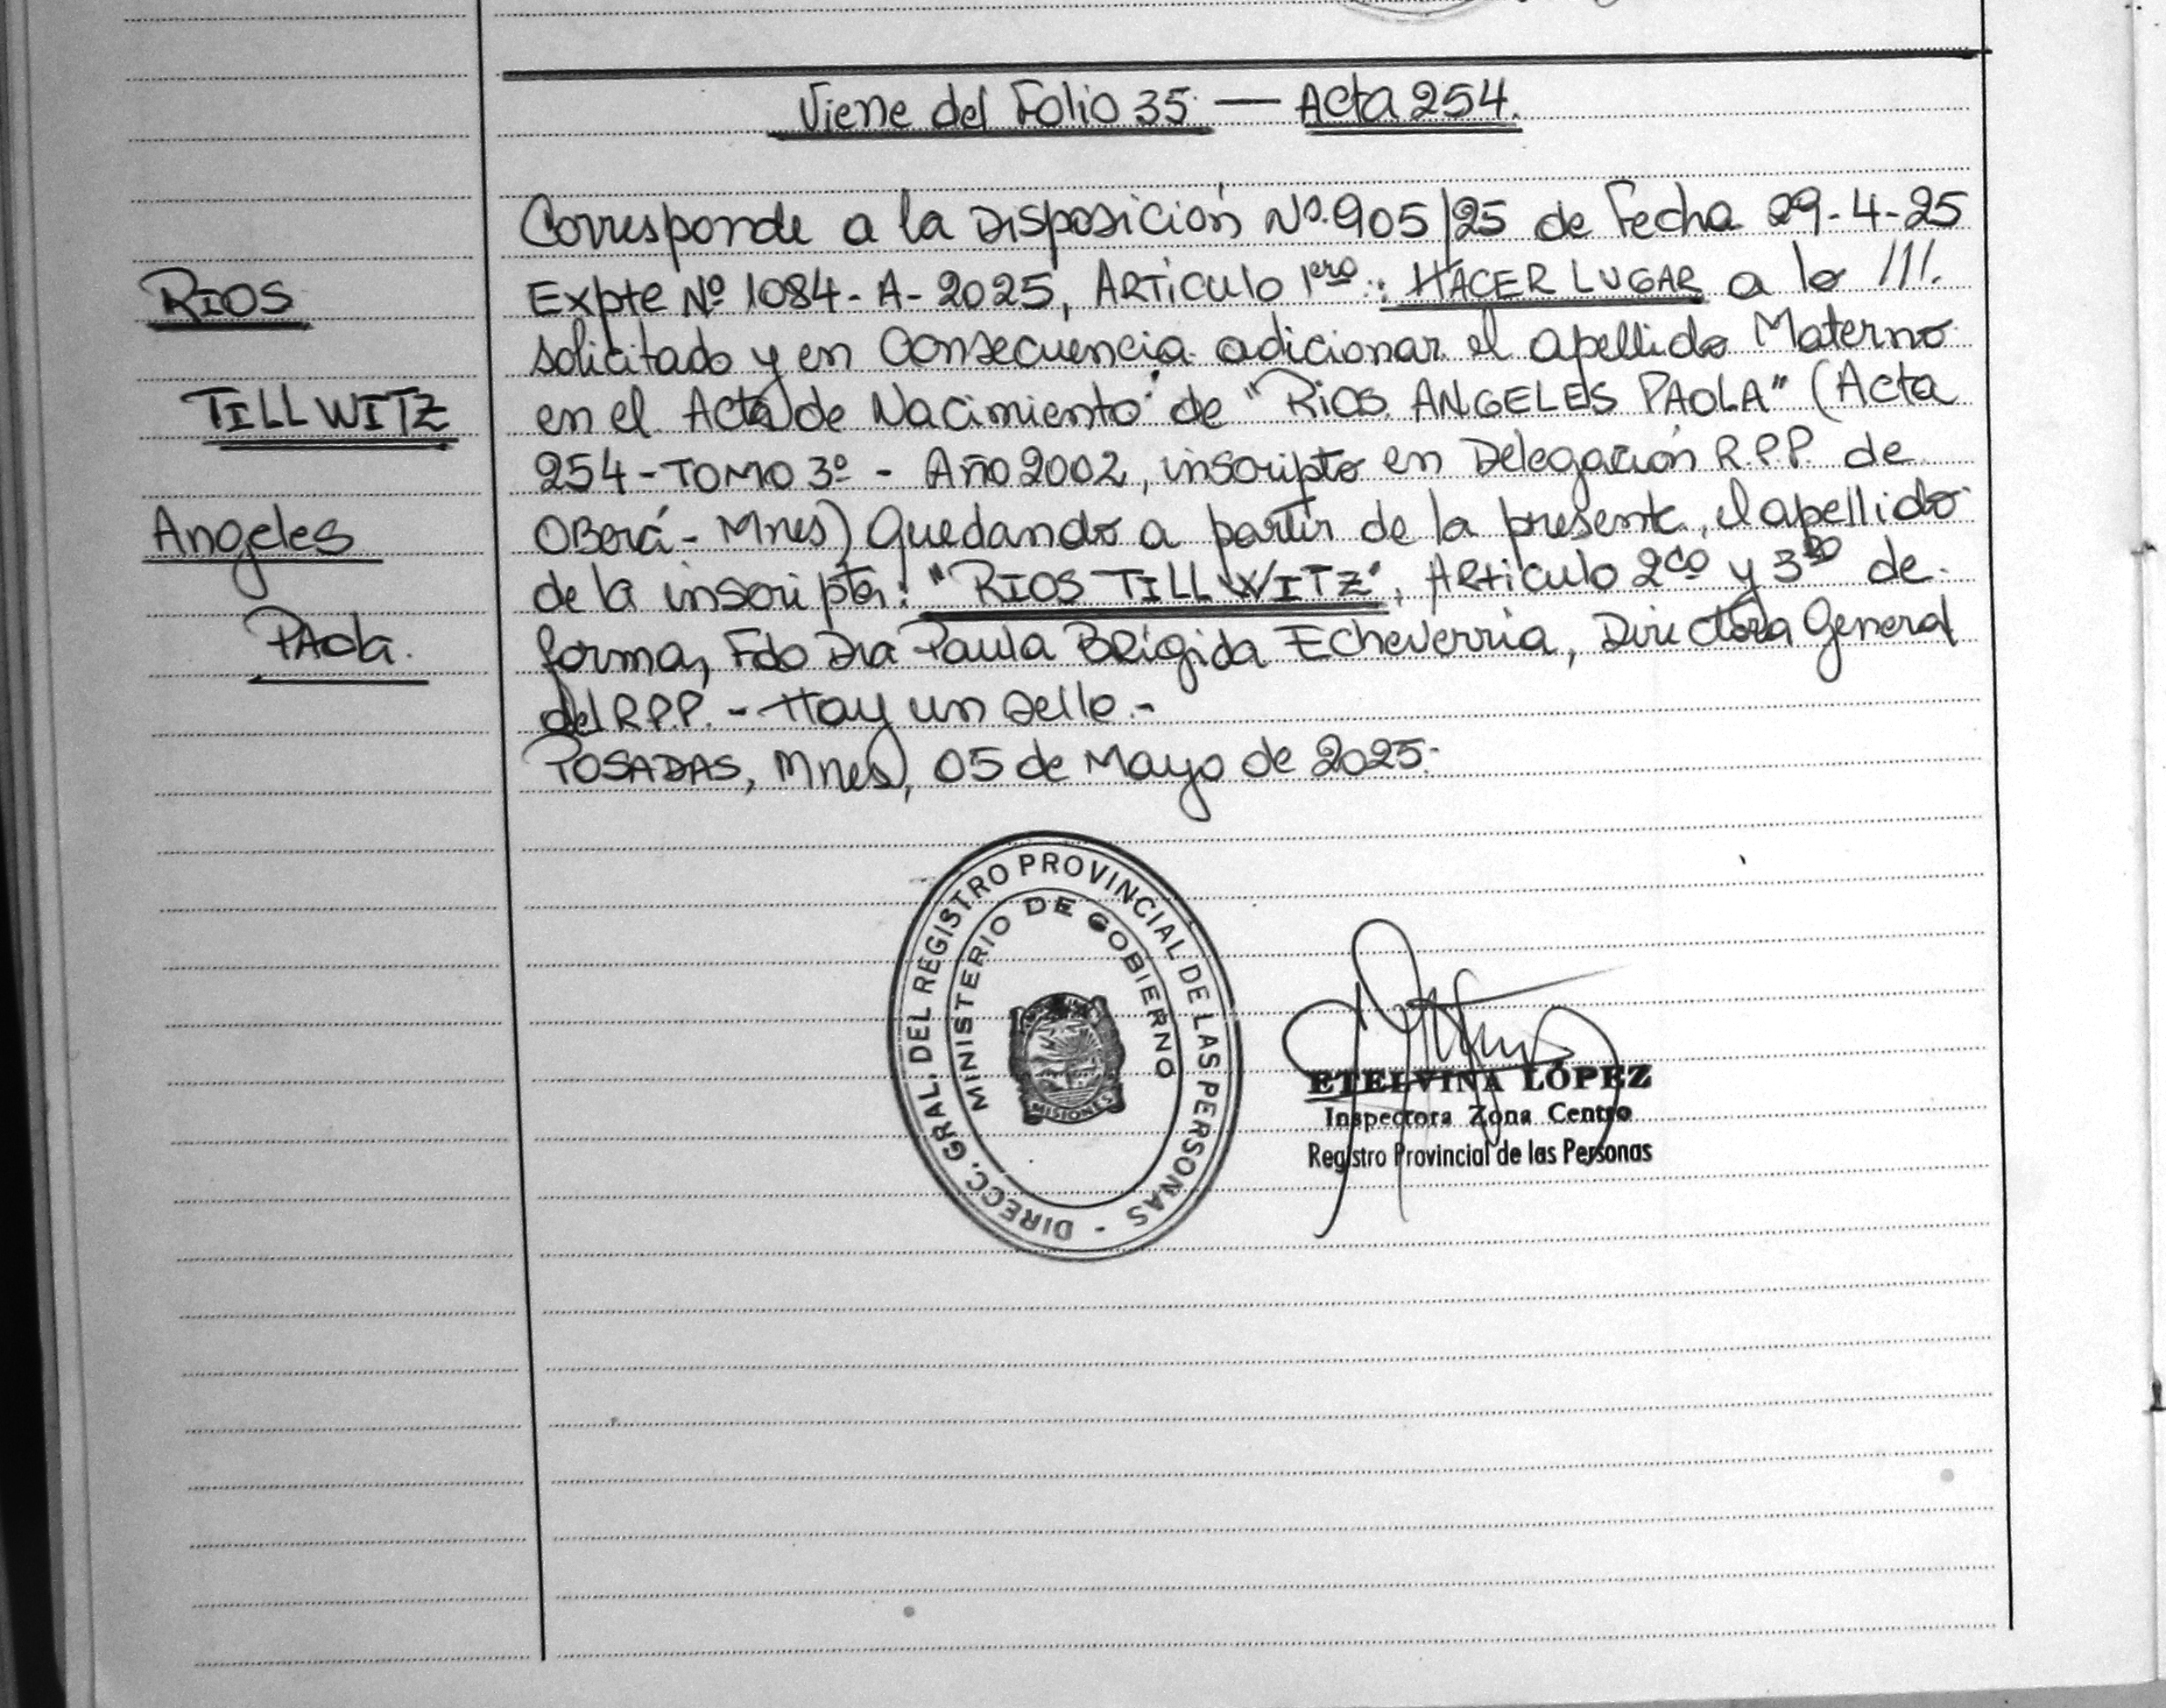 Viene del Folio 35 — Acta 254.
RIOS
TILLWITZ
Angeles
PAola.
Corresponde a la Disposición Nº 905/25 de Fecha 29-4-25
Expte Nº 1084-A-2025, ARTiculo 1ero: HACER LUGAR a lo ///.
solicitado y en Consecuencia adicionar el apellido Materno
en el Acta de Nacimiento de "RiOS ANGELES PAOLA" (Acta
254-TOMO 3º - Año 2002, inscripto en Delegación R.P.P. de
OBerá - Mnes) Quedando a partir de la presente, el apellido
de la inscripta: "RIOS TILLWITZ", Articulo 2do y 3ro de
forma, Fdo Dra Paula BRigida Echeverria, Directora General
del R.P.P. - Hay un sello.-
POSADAS, Mnes, 05 de Mayo de 2025.-
DIRECC. GRAL. DEL REGISTRO PROVINCIAL DE LAS PERSONAS -
MINISTERIO DE GOBIERNO
MISIONES
ETELVINA LÓPEZ
Inspectora Zona Centro
Registro Provincial de las Personas